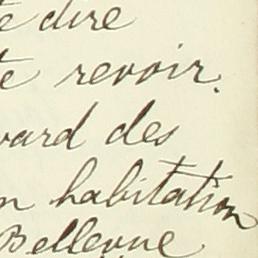 te dire
te revoir.
vard des
n habitation
Bellevue